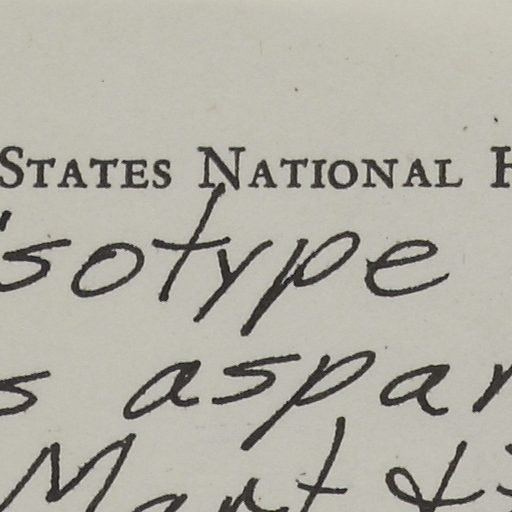 STATES NATIONAL H
isotype
s aspar
Mart &